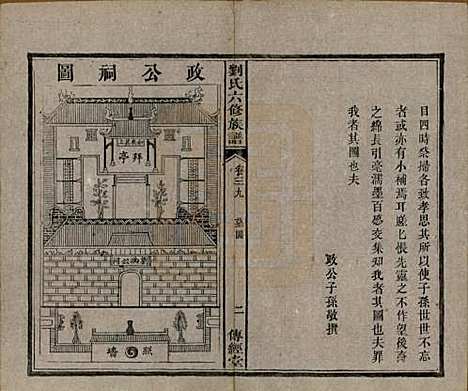 目四時祭掃各致孝思其所以使子孫世世不忘
者或亦有小補焉耳嗟乜悵先靈之不作望後裔
之綿長引毫濡墨百感交集知我者其圖也夫罪
我者其圖也夫
政公子孫敬撰
劉氏六修族譜
卷之九
墓圖
二
傳經堂
政公祠圖
拜亭
照牆